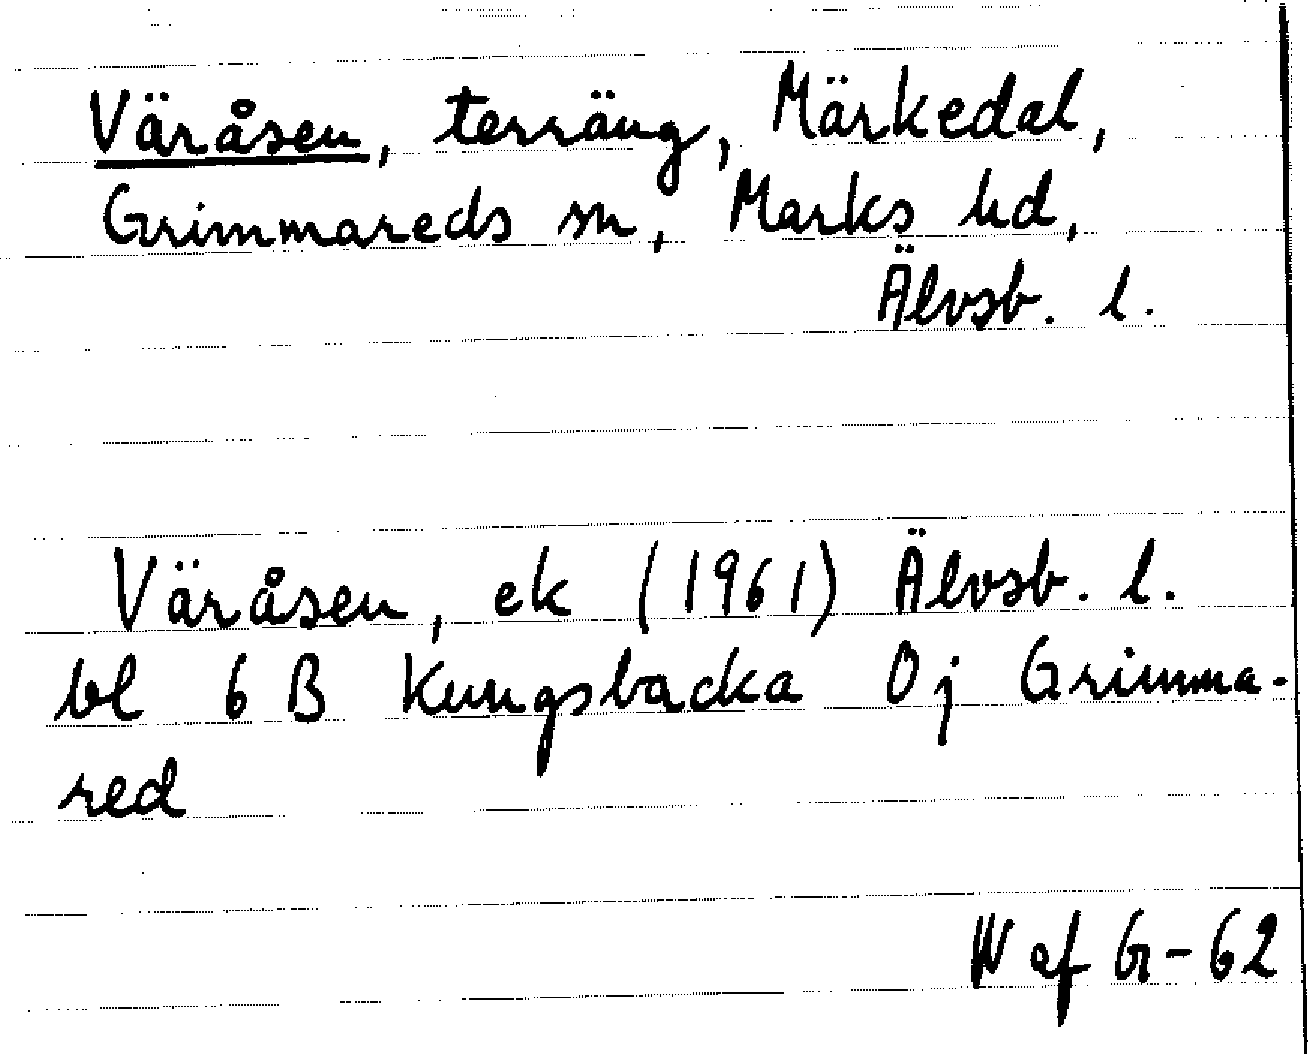 Väråsen, terräng, Märkedal,
Grimmareds sn, Marks hd,
Älvsb. l.
Väråsen, ek (1961) Älvsb. l.
bl 6 B Kungsbacka 0j Grimma-
red
W af G-62